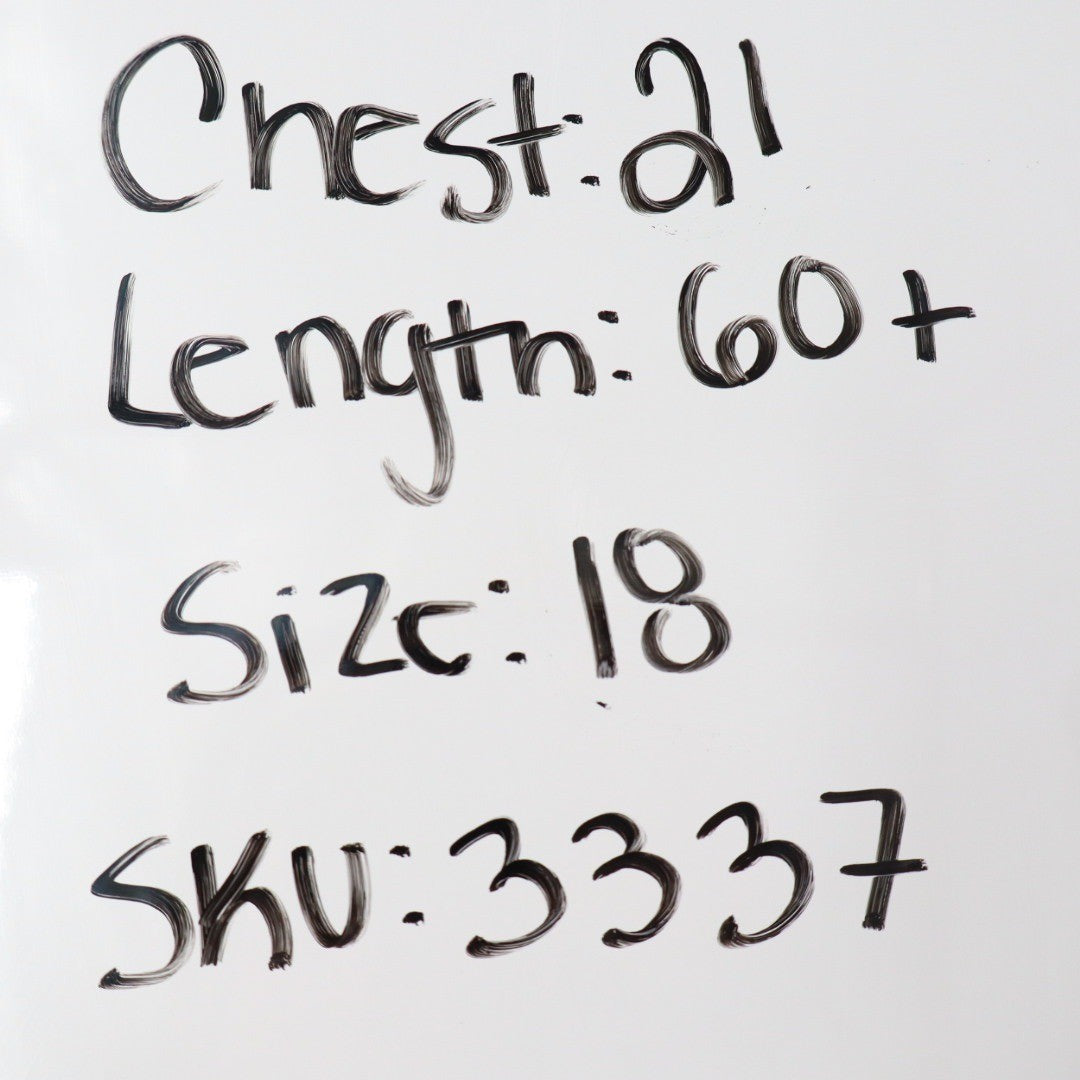 Chest: 21
Length: 60+
Size: 18
SKU: 3337